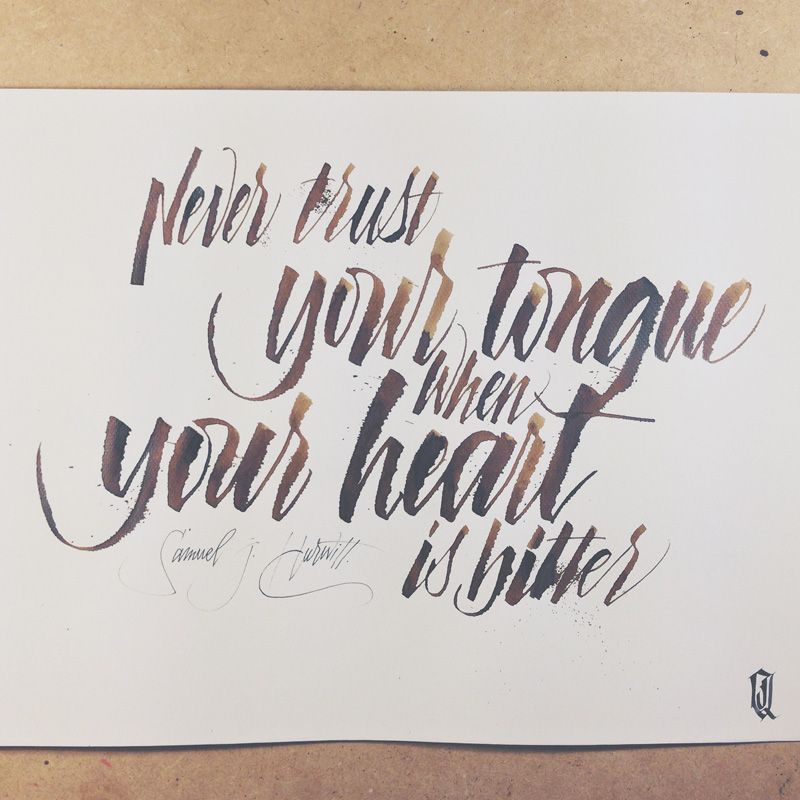 Never trust
your tongue
when
your heart
is bitter
Samuel J. Hurwitt.